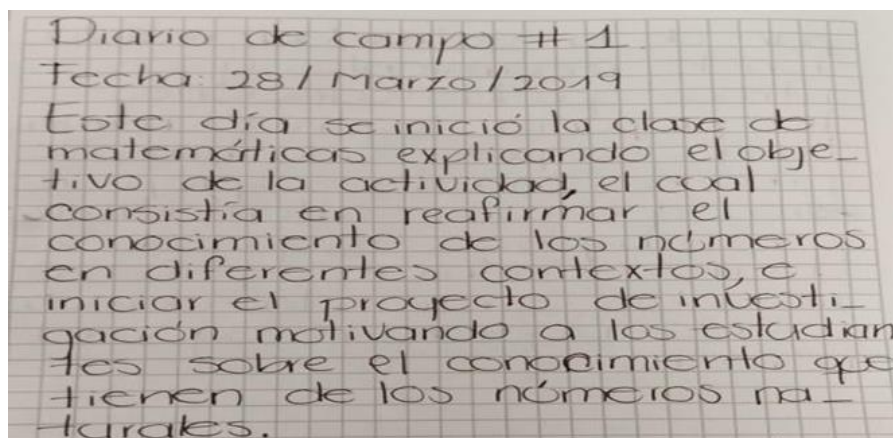 Diario de campo #1
Fecha: 28/Marzo/2019
Este día se inició la clase de
matemáticas explicando el obje_
tivo de la actividad, el cual
consistía en reafirmar el
conocimiento de los números
en diferentes contextos, e
iniciar el proyecto de investi_
gación motivando a los estudian
tes sobre el conocimiento que
tienen de los números na_
turales.